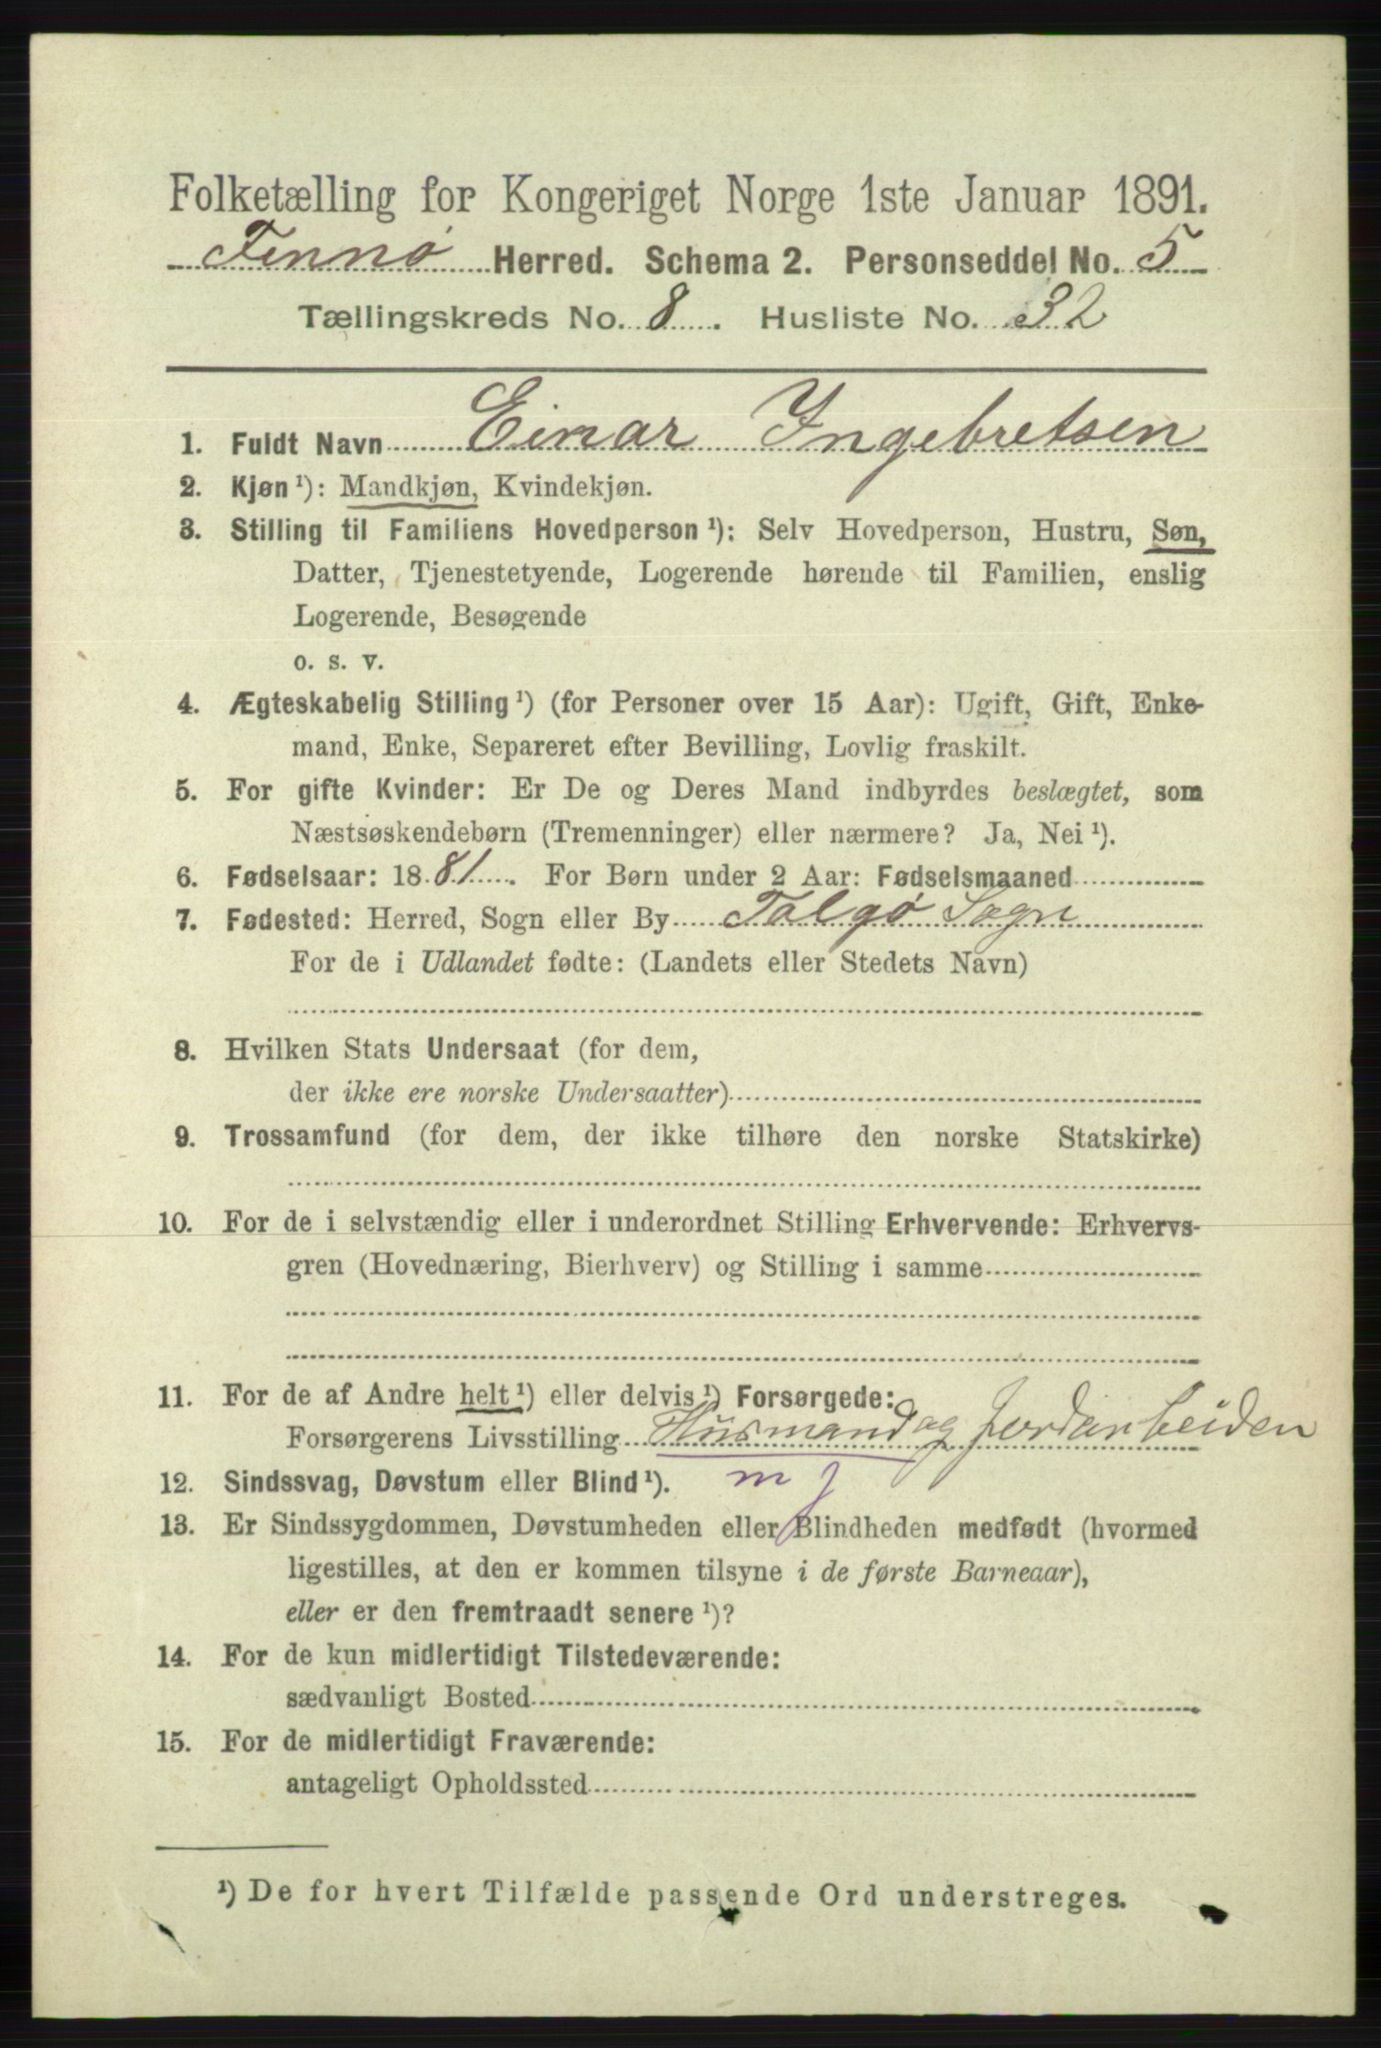 Folketælling for Kongeriget Norge 1ste Januar 1891.
Finnø Herred. Schema 2. Personseddel No. 5
Tællingskreds No. 8. Husliste No. 32
1. Fuldt Navn Einar Ingebretsen
2. Kjøn ¹): Mandkjøn, Kvindekjøn.
3. Stilling til Familiens Hovedperson ¹): Selv Hovedperson, Hustru, Søn,
Datter, Tjenestetyende, Logerende hørende til Familien, enslig
Logerende, Besøgende
o. s. v.
4. Ægteskabelig Stilling ¹) (for Personer over 15 Aar): Ugift, Gift, Enke-
mand, Enke, Separeret efter Bevilling, Lovlig fraskilt.
5. For gifte Kvinder: Er De og Deres Mand indbyrdes beslægtet, som
Næstsøskendebørn (Tremenninger) eller nærmere? Ja, Nei ¹).
6. Fødselsaar: 1881. For Børn under 2 Aar: Fødselsmaaned
7. Fødested: Herred, Sogn eller By Talgø Sogn
For de i Udlandet fødte: (Landets eller Stedets Navn)
8. Hvilken Stats Undersaat (for dem,
der ikke ere norske Undersaatter)
9. Trossamfund (for dem, der ikke tilhøre den norske Statskirke)
10. For de i selvstændig eller i underordnet Stilling Erhvervende: Erhvervs-
gren (Hovednæring, Bierhverv) og Stilling i samme
11. For de af Andre helt ¹) eller delvis ¹) Forsørgede:
Forsørgerens Livsstilling Husmand og Jordarbeiden
12. Sindssvag, Døvstum eller Blind ¹). m j
13. Er Sindssygdommen, Døvstumheden eller Blindheden medfødt (hvormed
ligestilles, at den er kommen tilsyne i de første Barneaar),
eller er den fremtraadt senere ¹)?
14. For de kun midlertidigt Tilstedeværende:
sædvanligt Bosted
15. For de midlertidigt Fraværende:
antageligt Opholdssted
¹) De for hvert Tilfælde passende Ord understreges.